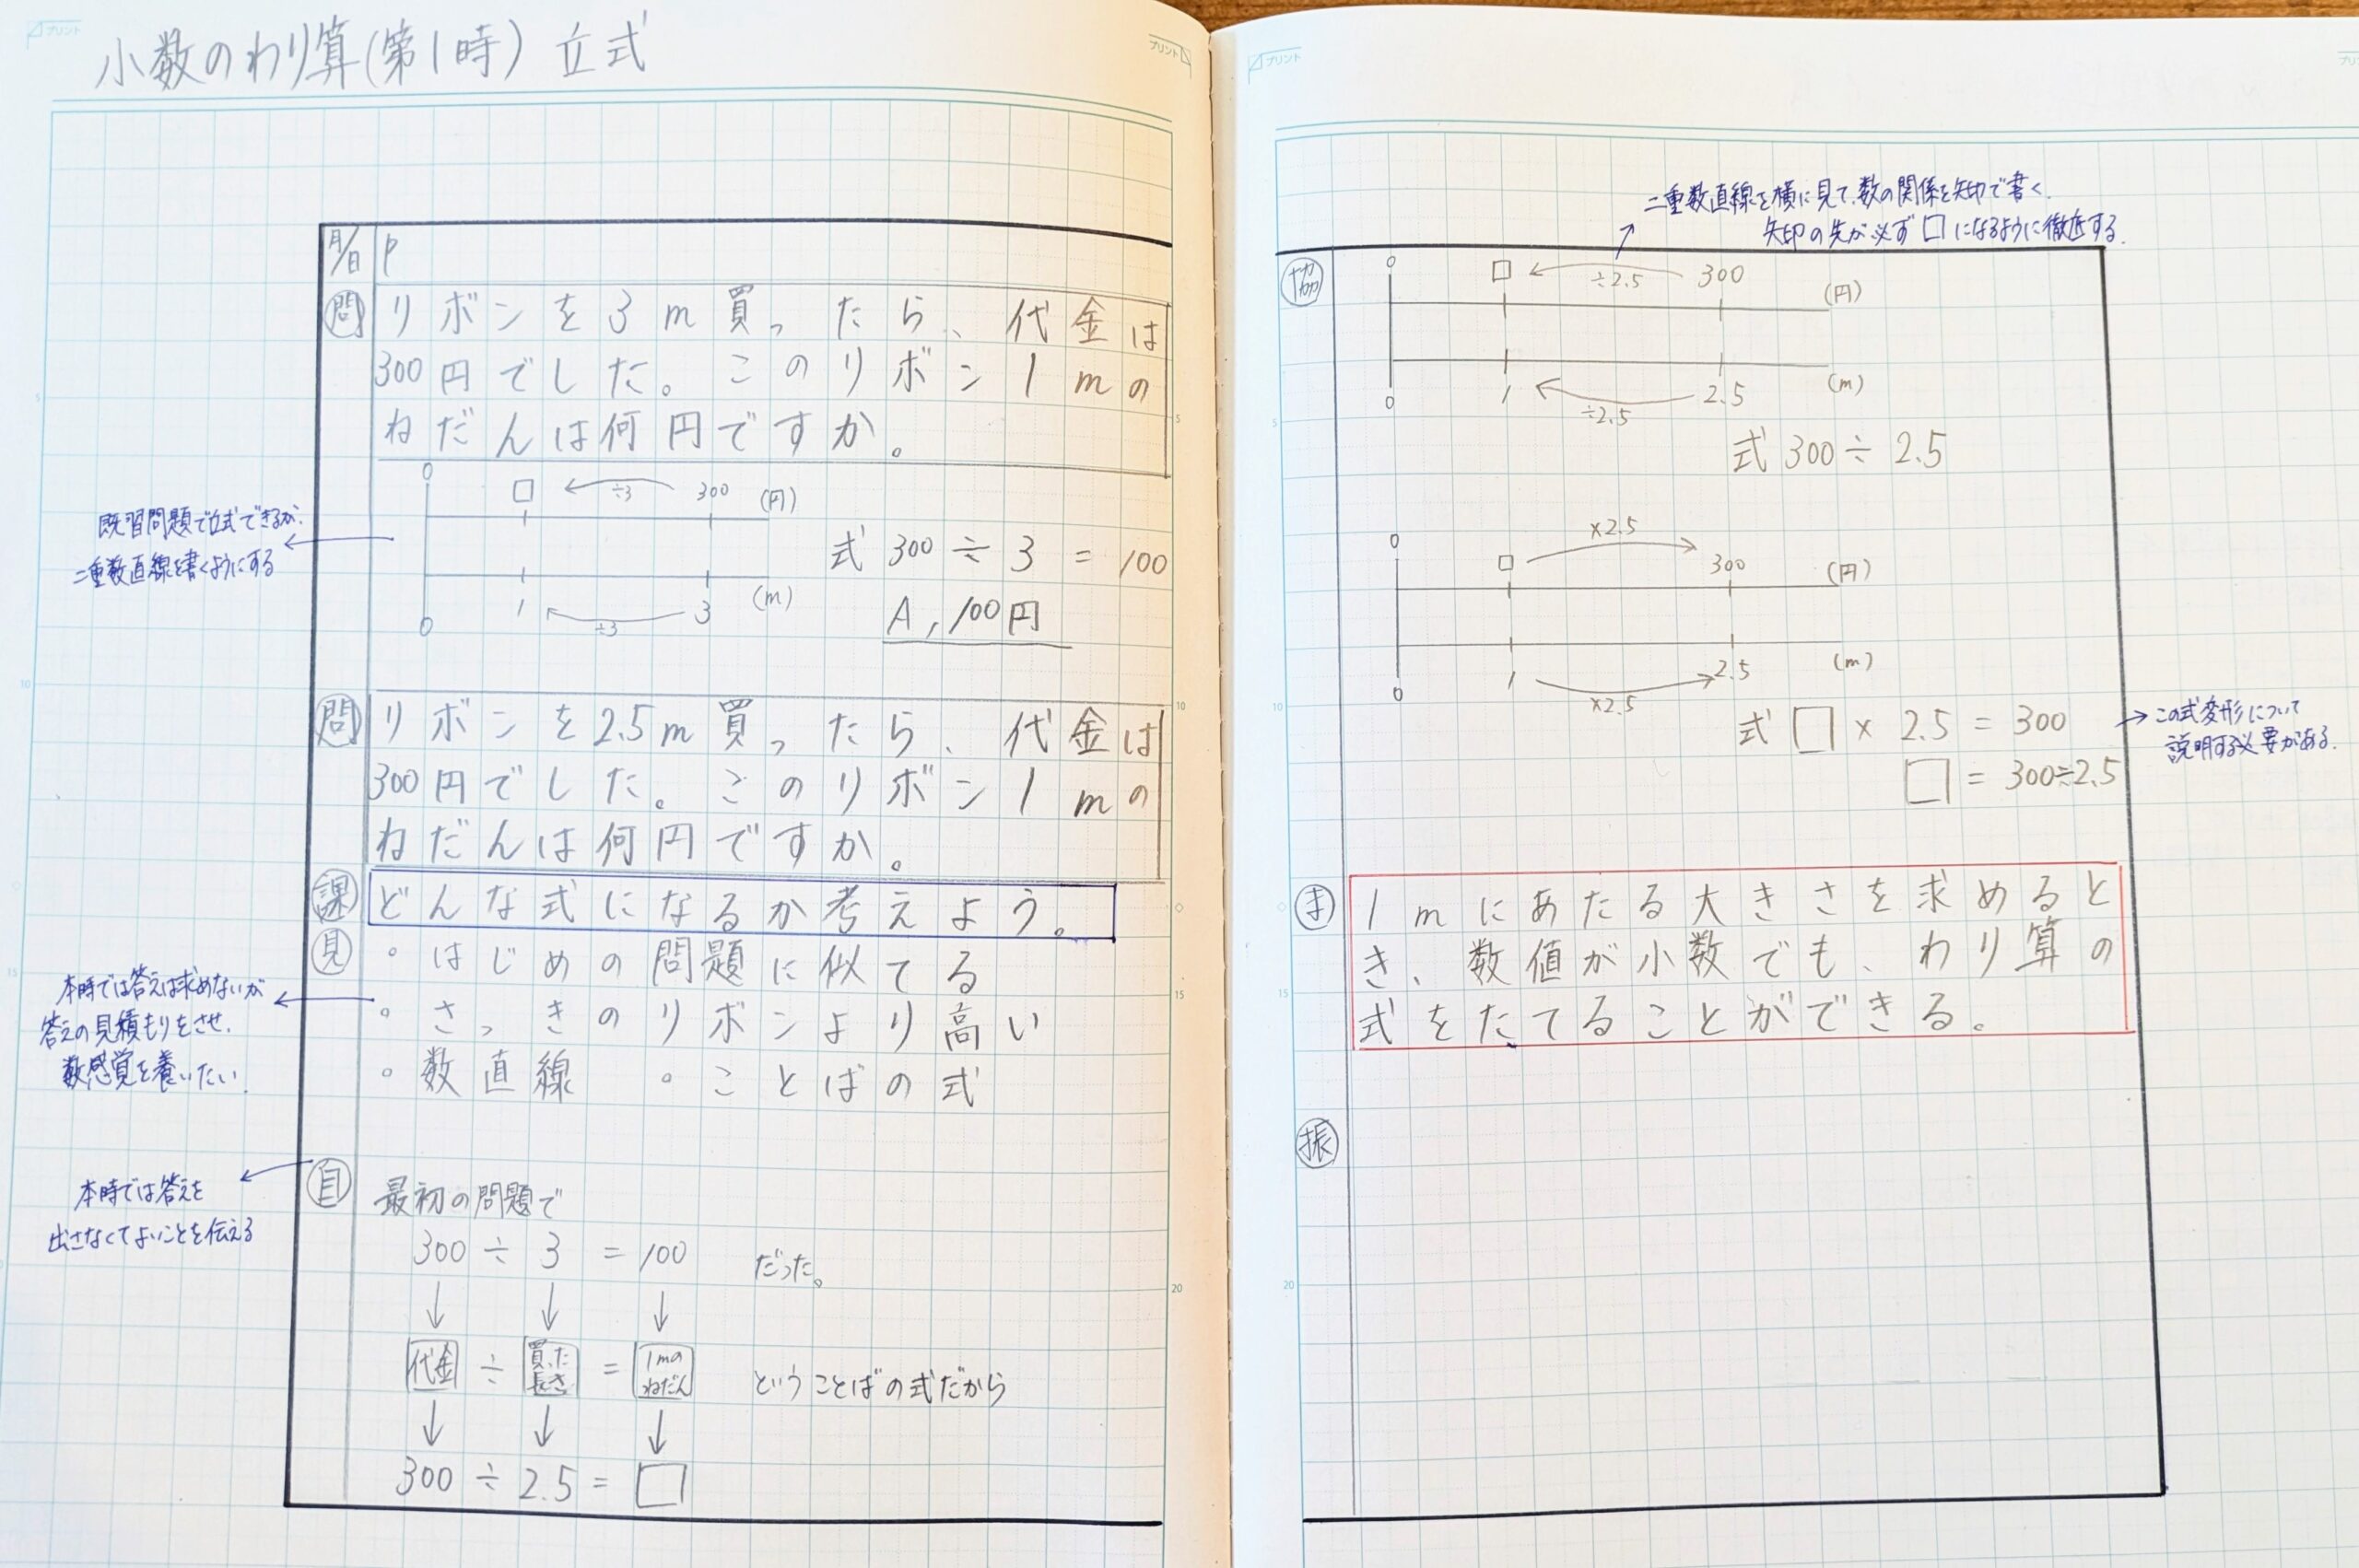 プリント
プリント
小数のわり算(第1時) 立式
月/日 P
問 リボンを3m買ったら、代金は
300円でした。このリボン1mの
ねだんは何円ですか。
0 □ ÷3 300 (円)
既習問題で立式できるが、
二重数直線を書くようにする
式 300 ÷ 3 = 100
0 1 ÷3 3 (m)
A, 100円
問 リボンを2.5m買ったら、代金は
300円でした。このリボン1mの
ねだんは何円ですか。
課 どんな式になるか考えよう。
見 ・はじめの問題に似てる
・さっきのリボンより高い
・数直線 ・ことばの式
本時では答えは求めないが
答えの見積もりをさせ、
数感覚を養いたい。
自 最初の問題で
本時では答えを
出さなくてよいことを伝える
300 ÷ 3 = 100 だった。
↓ ↓ ↓
代金 ÷ 買った長さ = 1mのねだん ということばの式だから
↓ ↓ ↓
300 ÷ 2.5 = □
5
10
15
20
プリント
プリ
二重数直線を横に見て、数の関係を矢印で書く。
矢印の先が必ず□になるように徹底する。
協 0 □ ÷2.5 300 (円)
0 1 ÷2.5 2.5 (m)
式 300 ÷ 2.5
×2.5
0 □ 300 (円)
0 1 2.5 (m)
×2.5
式 □ × 2.5 = 300
□ = 300÷2.5
この式変形について
説明する必要がある。
ま 1mにあたる大きさを求めると
き、数値が小数でも、わり算の
式をたてることができる。
振
5
10
15
20